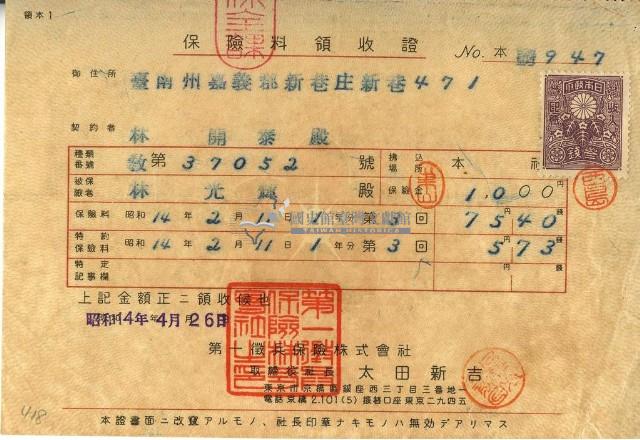 領本1
保險料領收證
No. 本 947
御住所
臺南州嘉義郡新巷庄新巷471
契約者
林開泰殿
種類番號 教第37052號 拂込場所 本社
被保險者名 林光 殿 保險金 1,000圓
保險料 昭和14年2月11日 1年分 第3回 75圓40錢
特約保險料 昭和14年2月11日 1年分 第3回 5圓73錢
特定記事欄
上記金額正ニ領收候也
昭和14年4月26日
第一徵兵保險株式會社
取締役社長 太田新吉
東京市京橋區銀座西三丁目三番地一
電話京橋2,101(5) 振替口座東京二九四五
本證書面ニ改竄アルモノ、社長印章ナキモノハ無効デアリマス
418
國史館臺灣文獻館
TAIWAN HISTORICA